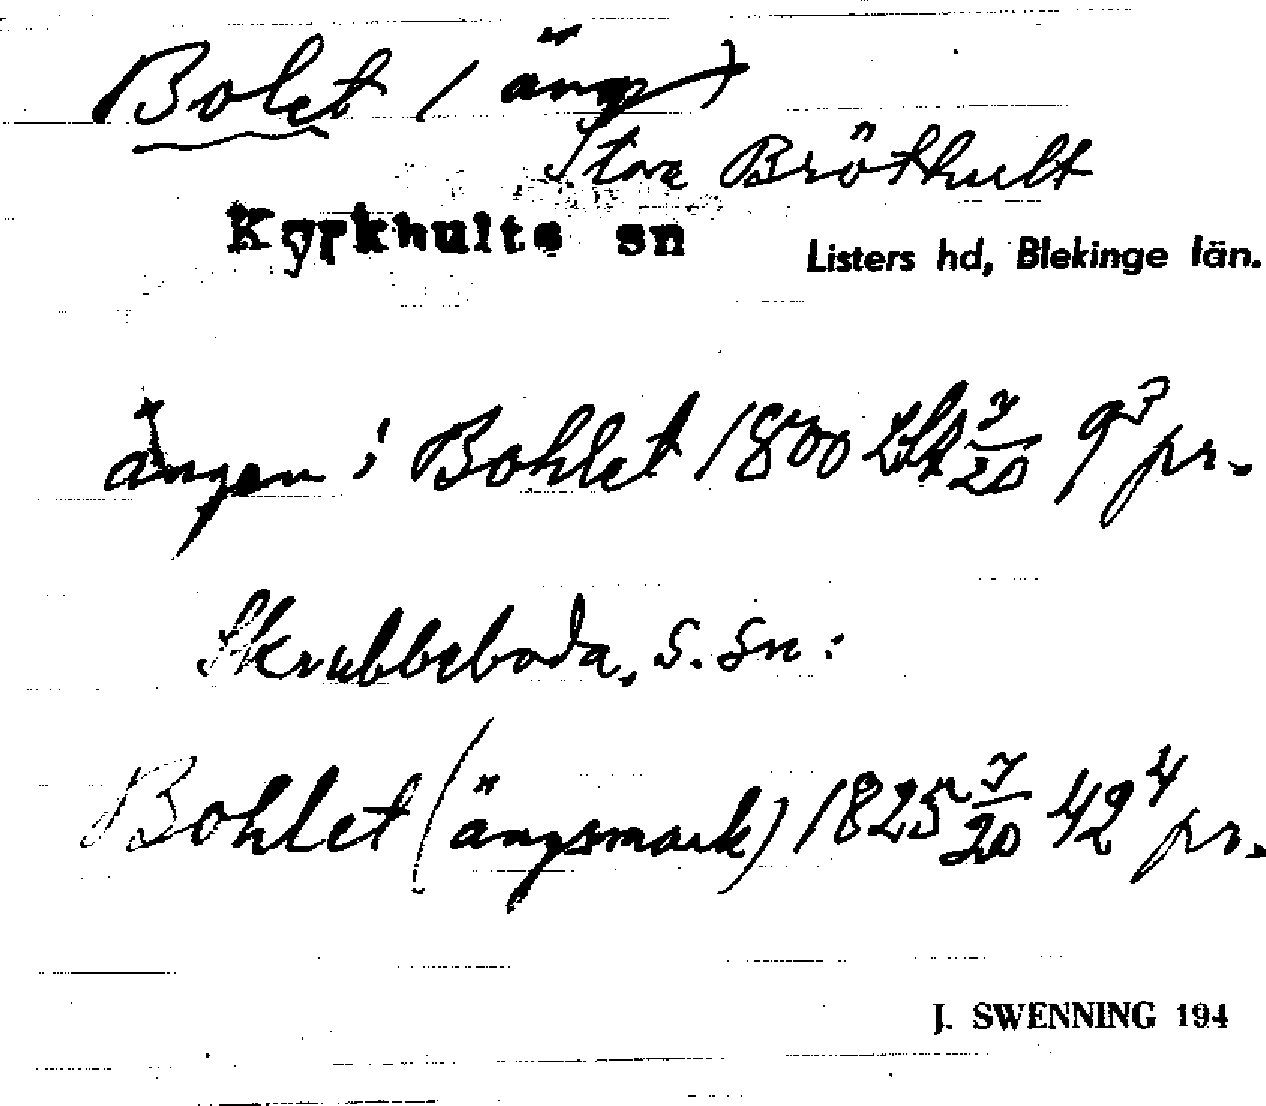 Bolet (äng)
Stora Bröthult
Kyrkhults sn
Listers hd, Blekinge län.
ängen i Bohlet 1800 7/20 9³ pr.
Skrubbeboda, s. sn:
Bohlet (ängsmark) 1825 7/20 42⁴ pr.
J. SWENNING 194